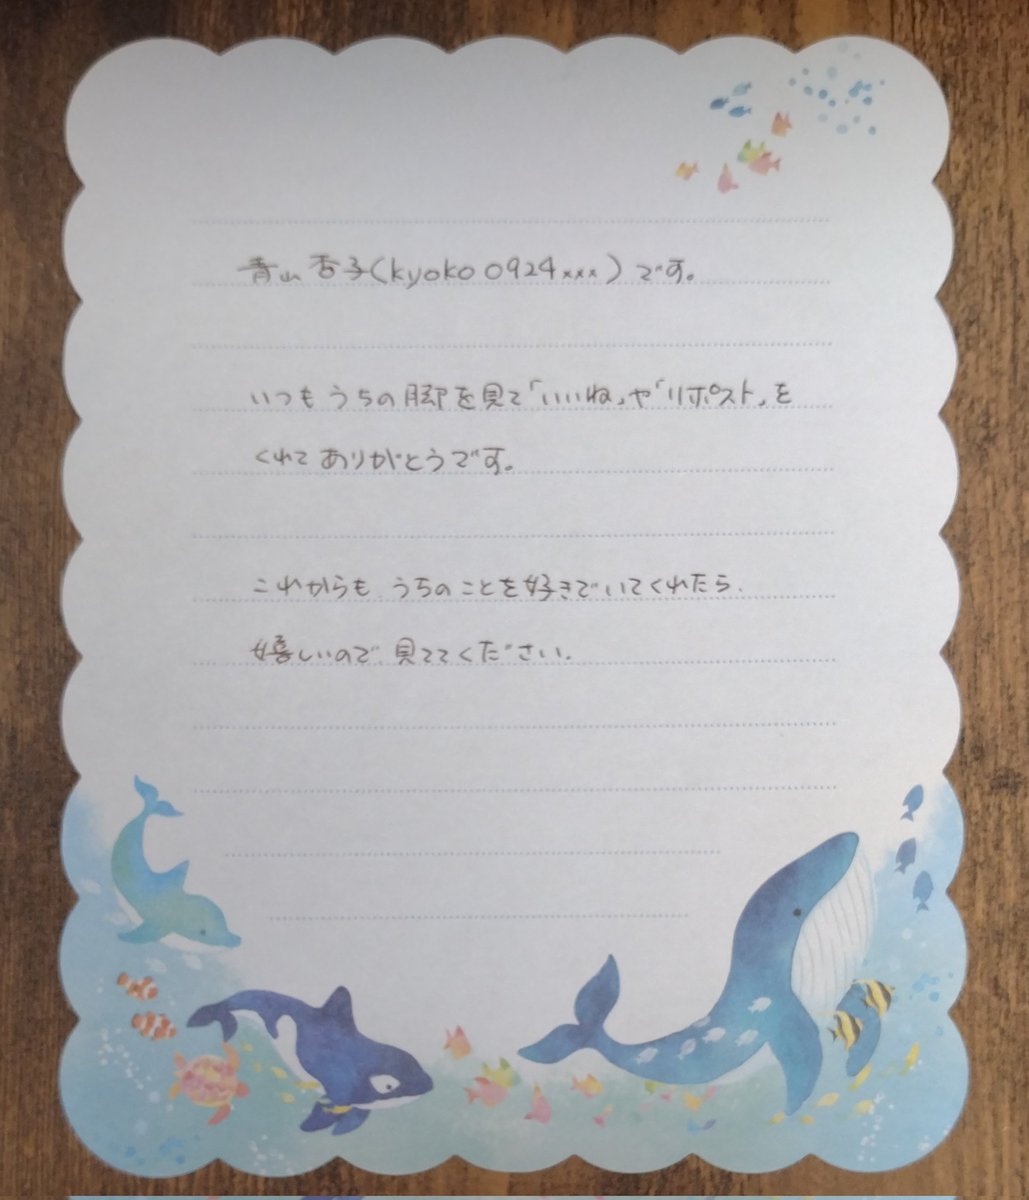 青山 杏子(kyoko0924xxx)です。
いつもうちの脚を見て「いいね」や「リポスト」を
くれてありがとうです。
これからも、うちのことを好きでいてくれたら、
嬉しいので、見ててください。